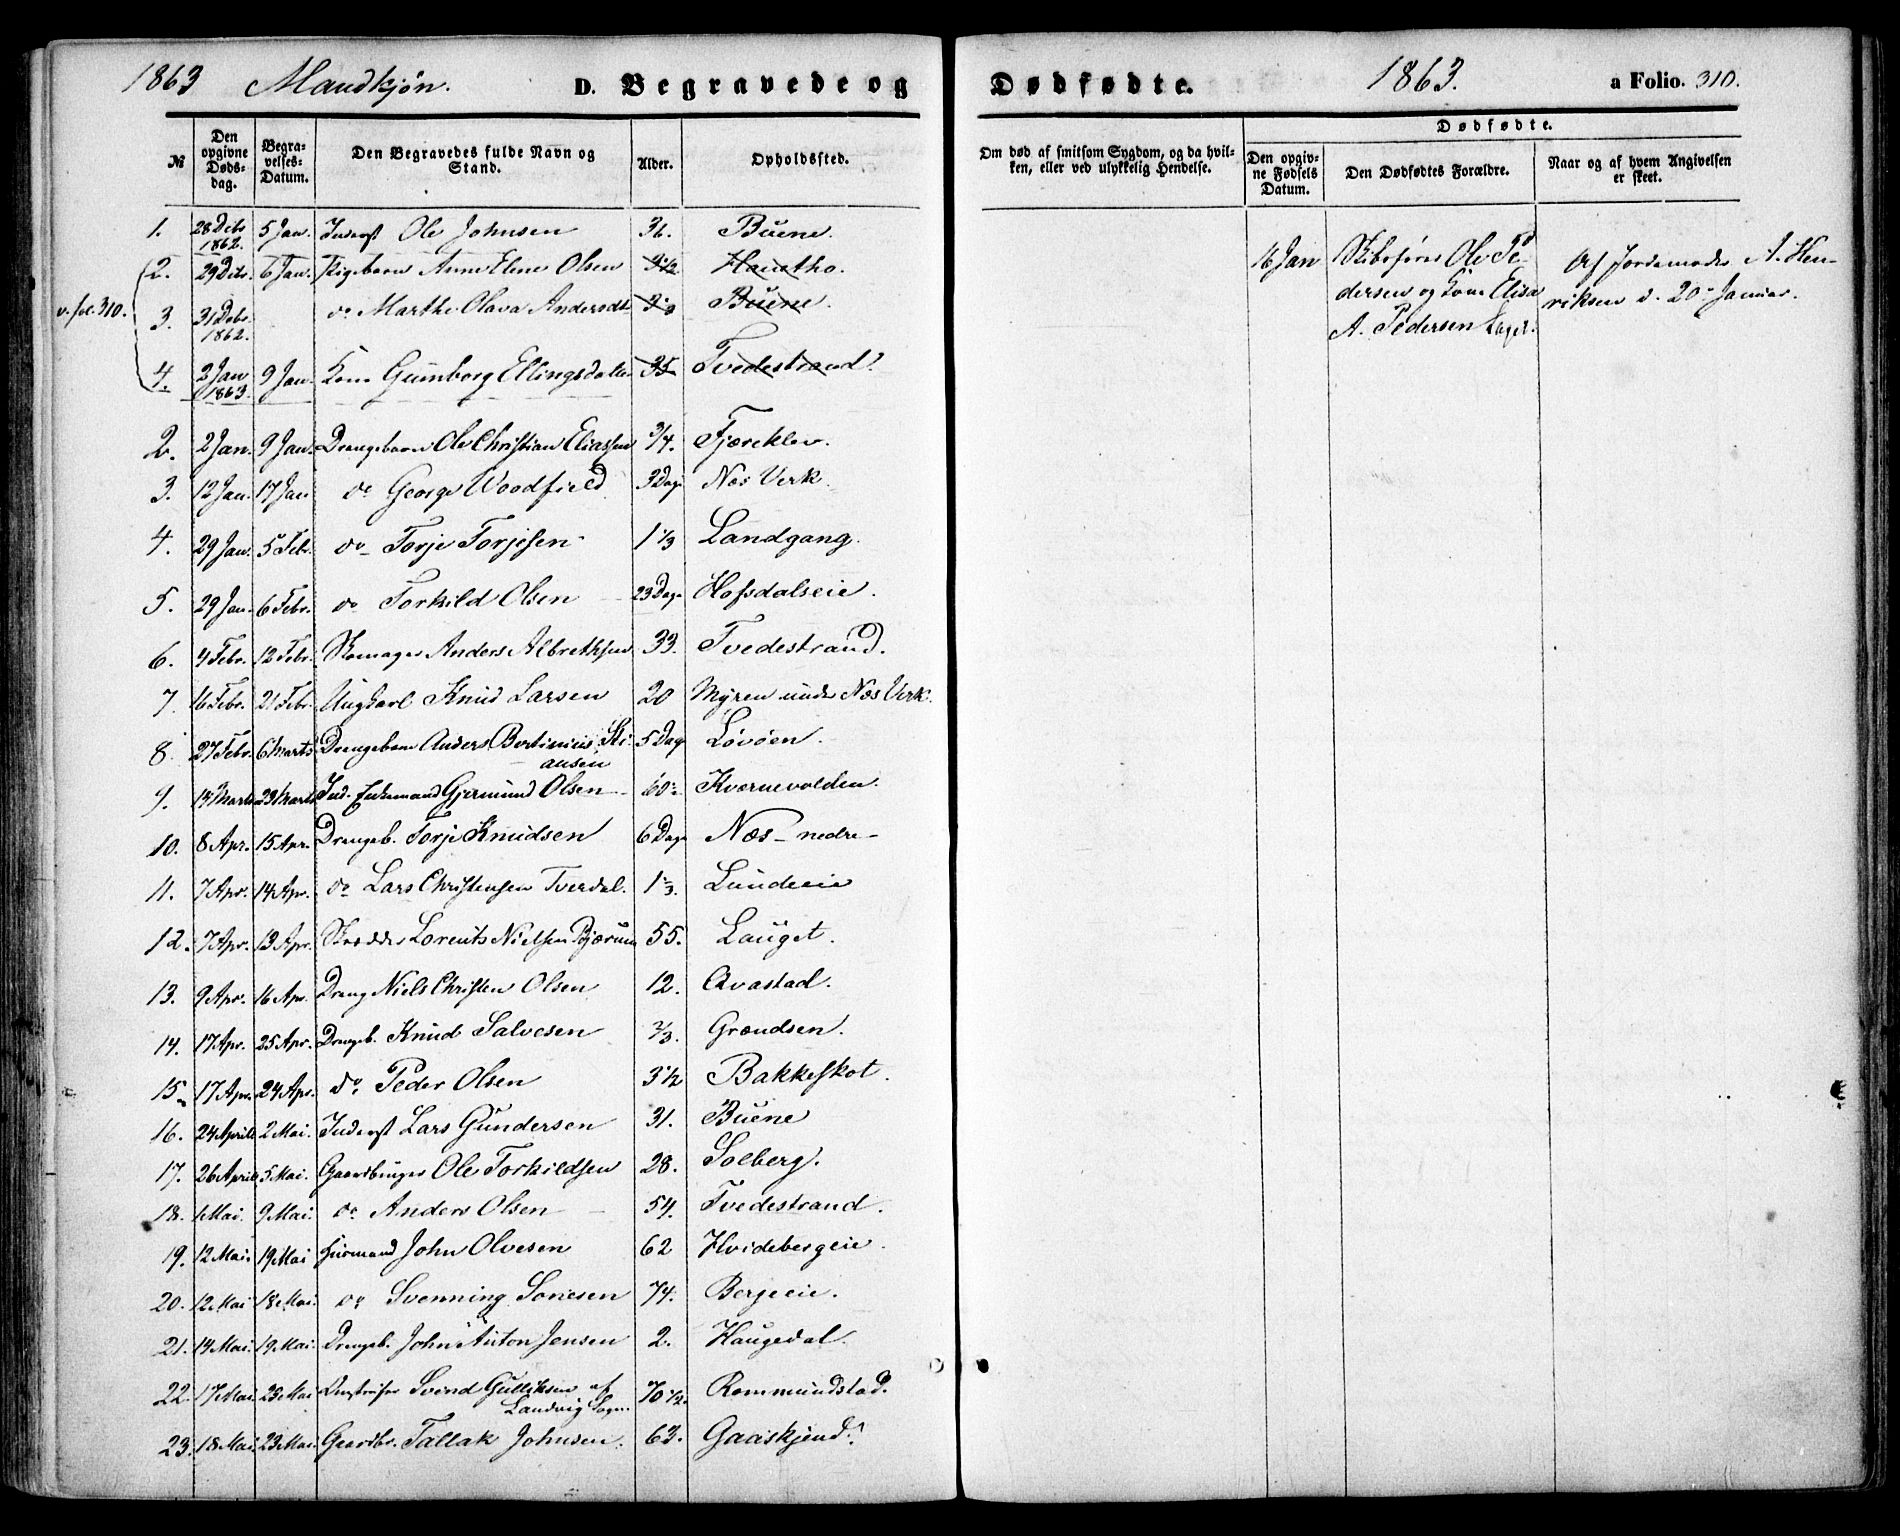 1863 Mandkjøn. D. Begravede og Dødfødte. 1863. a Folio. 310.
№
Den opgivne Døds-dag.
Begra-velses-Datum.
Den Begravedes fulde Navn og Stand.
Alder.
Opholdssted.
Om død af smitsom Sygdom, og da hvil-ken, eller ved ulykkelig Hendelse.
Dødfødte.
Den opgiv-ne Fødsels Datum.
Den Dødfødtes Forældre.
Naar og af hvem Angivelsen er skeet.
1. 28 Debr 1862. 5 Jan. Inderst Ole Johnsen 36. Buene.
2. 29 Debr. 6 Jan. Pigebarn Anne Elene Olsen 3 1/2 Hanstho.
v. fol. 310.
3. 31 Debr. 1862. do Marthe Olava Andersdtr Buene.
4. 2 Jan 1863. 9 Jan. Kone Gunborg Ellingsdatter 35 Tvedestrand.
2. 2 Jan. 9 Jan. Drengebarn Ole Christian Eliassen 3/4. Fjæreklev.
3. 12 Jan. 17 Jan do George Woodfield 3 Dage Næs Verk.
4. 29 Jan. 5 Febr. do Torje Torjesen 1 1/3 Landgang.
5. 29 Jan. 6 Febr. do Torkild Olsen 23 Dage Hofsdalseie.
6. 4 Febr. 12 Febr. Skomager Anders Albrethsen 33. Tvedestrand.
7. 16 Febr. 21 Febr. Ungkarl Knud Larsen 20 Myren under Næs Verk.
8. 27 Febr. 6 Marts Drengebarn Anders Bertinius Sti-
ansen 5 Dage Løvøen.
9. 14 Marts 23 Marts Ind. Enkemand Gjermund Olsen 60. Kværnevolden.
10. 8 Apr. 15 Apr. Drengeb. Torje Knudsen 6 Dage Næs nedre
11. 7 Apr. 14 Apr. do Lars Christensen Tverdal. 1 1/3. Lundeeie
12. 7 Apr. 13 Apr. Skrædder Lorents Nielsen Bjørum 55. Lauget.
13. 9 Apr. 16 Apr. Dreng Niels Christen Olsen 12. Qvastad.
14. 17 Apr. 25 Apr. Drengeb. Knud Salvesen 2/3. Grændsen.
15. 17 Apr. 24 Apr. do Peder Olsen 3 1/2 Bakkeskot.
16. 24 April 2 Mai. Inderst Lars Gundersen 31. Buene
17. 26 April 5 Mai. Gaardbruger Ole Torkildsen 28. Solberg.
18. 1 Mai. 9 Mai. do Anders Olsen 54. Tvedestrand.
19. 12 Mai. 19 Mai Huusmand John Olvesen 62 Hvidebergeie.
20. 12 Mai 18 Mai. do Svenning Sonesen 74. Bergeeie.
21. 14 Mai. 19 Mai. Drengeb. John Anton Jensen 2. Haugedal.
22. 17 Mai. 23 Mai Svend Gulliksen af
Landvig Sogn. 70 1/2. Rommundstad.
23. 18 Mai. 23 Mai. Gaardbr. Tallak Johnsen. 63. Gaaskjend.
16 Jan
Skibsfører Ole Pe-
dersen og Kone Elisa
A. Pedersen Laget.
Af Jordemoder A. Hen-
riksen d. 20 Januar.